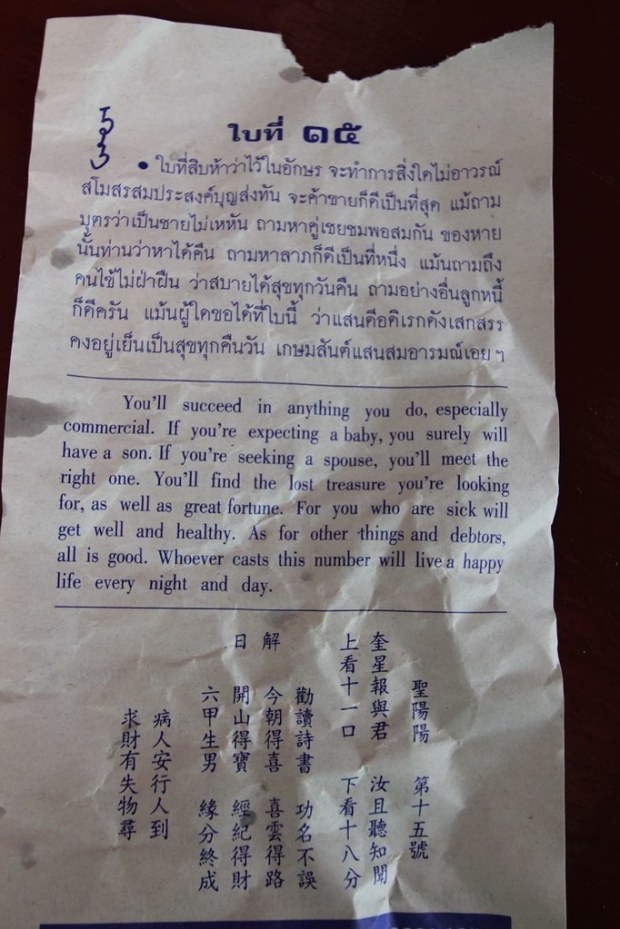 ใบที่ ๑๕
• ใบที่สิบห้าว่าไว้ในอักษร จะทำการสิ่งใดไม่อาวรณ์
สโมสรสมประสงค์บุญส่งทัน จะค้าขายก็ดีเป็นที่สุด แม้ถาม
บุตรว่าเป็นชายไม่เหหัน ถามหาคู่เชยชมพอสมกัน ของหาย
นั้นท่านว่าหาได้คืน ถามหาลาภก็ดีเป็นที่หนึ่ง แม้นถามถึง
คนไข้ไม่ฝ่าฝืน ว่าสบายได้สุขทุกวันคืน ถามอย่างอื่นลูกหนี้
ก็ดีครัน แม้นผู้ใดขอได้ที่ใบนี้ ว่าแสนดีอดิเรกดังเสกสรร
คงอยู่เย็นเป็นสุขทุกคืนวัน เกษมสันต์แสนสมอารมณ์เอย ๆ
You'll succeed in anything you do, especially
commercial. If you're expecting a baby, you surely will
have a son. If you're seeking a spouse, you'll meet the
right one. You'll find the lost treasure you're looking
for, as well as great fortune. For you who are sick will
get well and healthy. As for other things and debtors,
all is good. Whoever casts this number will live a happy
life every night and day.
聖陽陽 第十五號
奎星報與君 汝且聽知聞
上看十一口 下看十八分
解日
勸讀詩書 功名不誤
今朝得喜 喜雲得路
開山得寶 經紀得財
六甲生男 緣分終成
病人安行人到
求財有失物尋